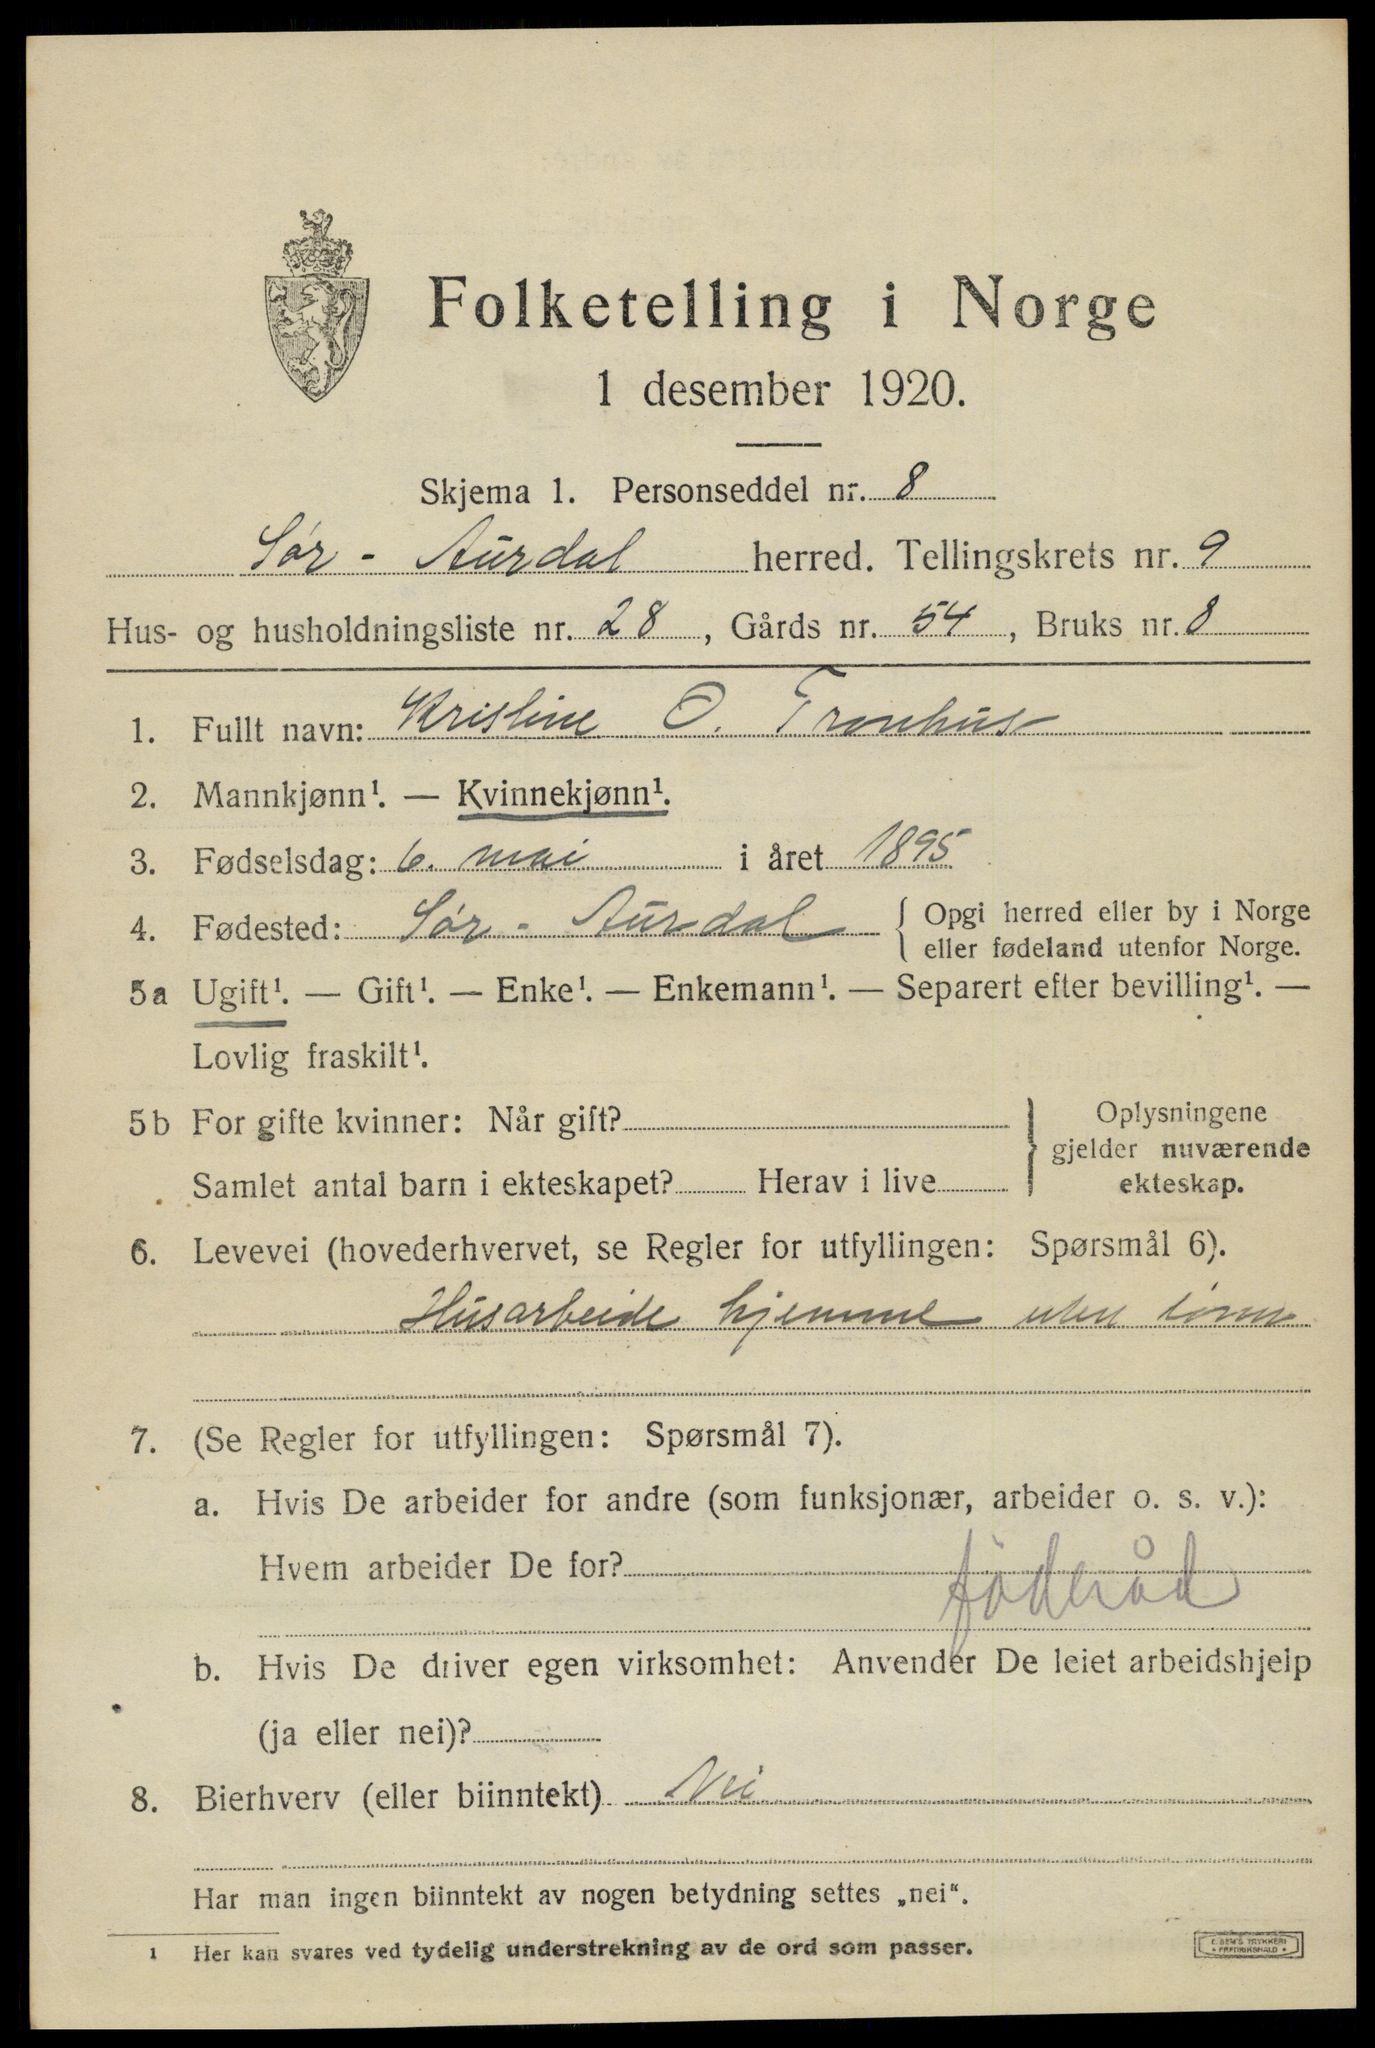 Folketelling i Norge
1 desember 1920.
Skjema 1. Personseddel nr. 8
Sør - Aurdal herred. Tellingskrets nr. 9
Hus- og husholdningsliste nr. 28, Gårds nr. 54, Bruks nr. 8
1. Fullt navn: Kristine O. Tronhus
2. Mannkjønn¹. — Kvinnekjønn¹.
3. Fødselsdag: 6. mai i året 1895
4. Fødested: Sør - Aurdal { Opgi herred eller by i Norge
eller fødeland utenfor Norge.
5a Ugift¹. — Gift¹. — Enke¹. — Enkemann¹. — Separert efter bevilling¹. —
Lovlig fraskilt¹.
5b For gifte kvinner: Når gift?
Samlet antal barn i ekteskapet? Herav i live
} Oplysningene
gjelder nuværende
ekteskap.
6. Levevei (hovederhvervet, se Regler for utfyllingen: Spørsmål 6).
Husarbeide hjemme uten lønn
7. (Se Regler for utfyllingen: Spørsmål 7).
a. Hvis De arbeider for andre (som funksjonær, arbeider o. s. v.):
Hvem arbeider De for?
föderåd
b. Hvis De driver egen virksomhet: Anvender De leiet arbeidshjelp
(ja eller nei)?
8. Bierhverv (eller biinntekt) Nei
Har man ingen biinntekt av nogen betydning settes „nei“.
1 Her kan svares ved tydelig understrekning av de ord som passer.
E. SEM'S TRYKKERI
FREDRIKSHALD